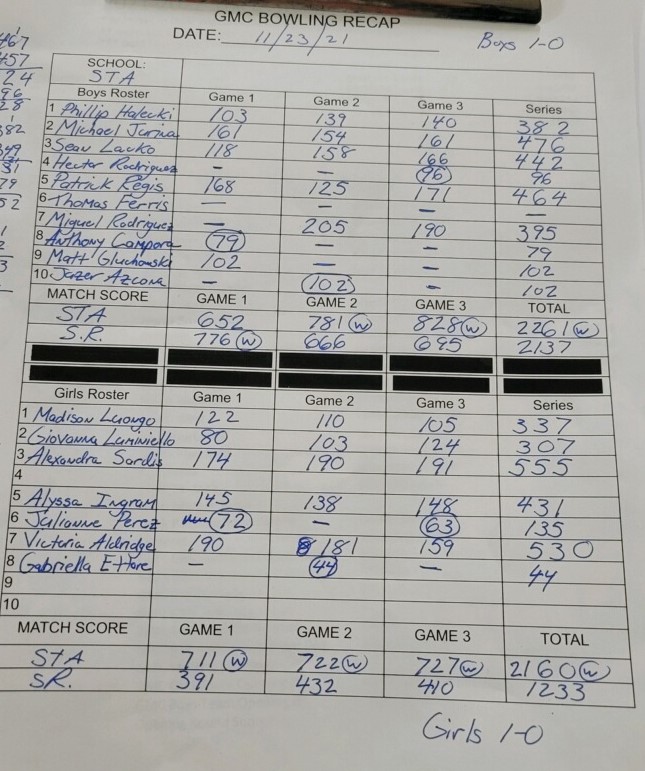 GMC BOWLING RECAP
DATE: 11/23/21 Boys 1-0
SCHOOL:
STA
Boys Roster Game 1 Game 2 Game 3 Series
1 Phillip Halecki 103 139 140 382
2 Michael 161 154 161 476
3 Sean Lacko 118 158 166 442
4 Hector Rodriguez - - 96 96
5 Patrick Regis 168 125 171 464
6 Thomas Ferris - - - -
7 Miguel Rodriguez - 205 190 395
8 Anthony Campora 79 - - 79
9 Matt Gluchowski 102 - - 102
10 Jazer Azcona - 102 - 102
MATCH SCORE GAME 1 GAME 2 GAME 3 TOTAL
STA 652 781 W 828 W 2261 W
S.R. 776 W 666 695 2137
Girls Roster Game 1 Game 2 Game 3 Series
1 Madison Luongo 122 110 105 337
2 Giovanna Luminiello 80 103 124 307
3 Alexandra Sardis 174 190 191 555
4
5 Alyssa Ingram 145 138 148 431
6 Julianne Perez 72 - 63 135
7 Victoria Aldridge 190 181 159 530
8 Gabriella Ettore - 44 - 44
9
10
MATCH SCORE GAME 1 GAME 2 GAME 3 TOTAL
STA 711 W 722 W 727 W 2160 W
SR. 391 432 410 1233
Girls 1-0